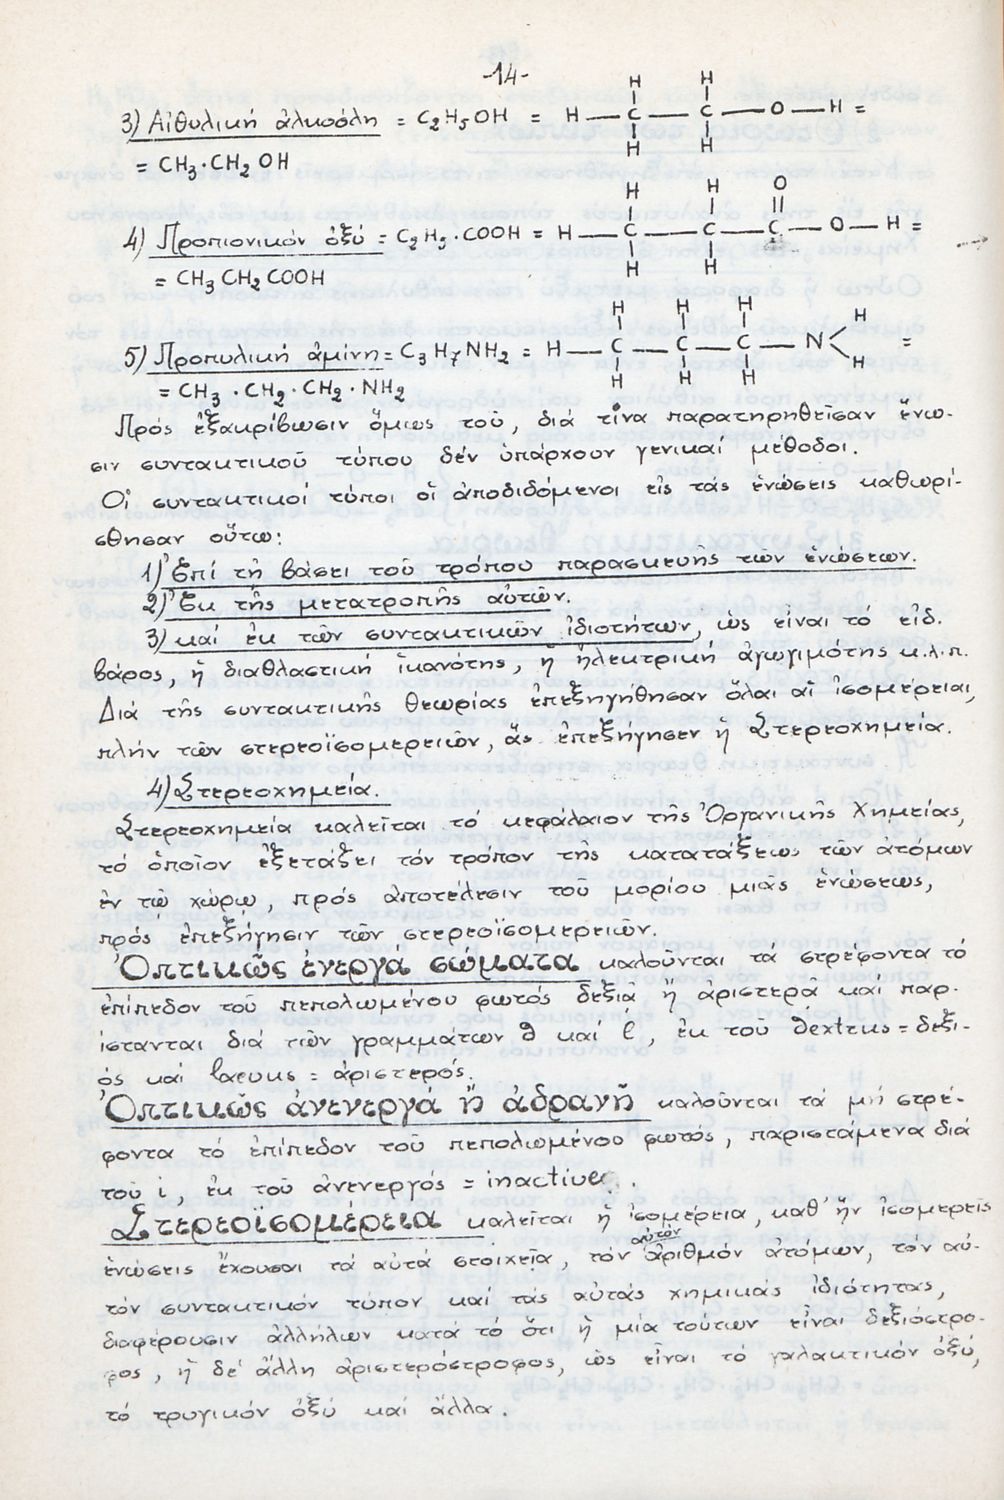 -14-
3) Αἰθυλική ἀλκοόλη = C2H5OH = H—C—C—O—H =
= CH3·CH2 OH
4) Προπιονικόν ὀξύ = C2H5·COOH = H—C—C—C—O—H =
= CH3 CH2 COOH
5) Προπυλική ἀμίνη = C3H7NH2 = H—C—C—C—N<H H =
= CH3·CH2·CH2·NH2
Πρός ἐξακρίβωσιν ὅμως τοῦ, διά τίνα παρατηρηθεῖσαν ἕνω-
σιν συντακτικοῦ τύπου δέν ὑπάρχουν γενικαί μέθοδοι.
Οἱ συντακτικοί τύποι οἱ ἀποδιδόμενοι εἰς τάς ἑνώσεις καθωρί-
σθησαν οὕτω:
1) Ἐπί τῇ βάσει τοῦ τρόπου παρασκευῆς τῶν ἑνώσεων.
2) Ἐκ τῆς μετατροπῆς αὐτῶν.
3) καί ἐκ τῶν συντακτικῶν ἰδιοτήτων, ὡς εἶναι τό εἰδ.
βάρος, ἡ διαθλαστική ἱκανότης, ἡ ἠλεκτρική ἀγωγιμότης κ.λ.π.
Διά τῆς συντακτικῆς θεωρίας ἐπεξηγήθησαν ὅλαι αἱ ἰσομέρειαι,
πλήν τῶν στερεοϊσομερειῶν, ἅς ἐπεξήγησεν ἡ Στερεοχημεία.
4) Στερεοχημεία.
Στερεοχημεία καλεῖται τό κεφάλαιον τῆς Ὀργανικῆς Χημείας,
τό ὁποῖον ἐξετάζει τόν τρόπον τῆς κατατάξεως τῶν ἀτόμων
ἐν τῷ χώρῳ, πρός ἀποτέλεσιν τοῦ μορίου μιᾶς ἑνώσεως,
πρός ἐπεξήγησιν τῶν στερεοϊσομερειῶν.
Ὀπτικῶς ἐνεργά σώματα καλοῦνται τα στρέφοντα τό
ἐπίπεδον τοῦ πεπολωμένου φωτός δεξιά ἤ ἀριστερά καί παρ-
ίστανται διά τῶν γραμμάτων d καί l, ἐκ τοῦ dextrus = δεξι-
ός καί laevus = ἀριστερός.
Ὀπτικῶς ἀνενεργά ἤ ἀδρανῆ καλοῦνται τά μή στρέ-
φοντα τό ἐπίπεδον τοῦ πεπολωμένου φωτός, παριστάμενα διά
τοῦ i, ἐκ τοῦ ἀνενεργός = inactive.
Στερεοϊσομέρεια καλεῖται ἡ ἰσομέρεια, καθ' ἥν ἰσομερεῖς
ἑνώσεις ἔχουσαι τά αὐτά στοιχεῖα, τόν αὐτό ἀριθμόν ἀτόμων, τόν αὐ-
τόν συντακτικόν τύπον καί τάς αὐτάς χημικάς ἰδιότητας,
διαφέρουσιν ἀλλήλων κατά τό ὅτι ἡ μία τούτων εἶναι δεξιόστρο-
φος, ἡ δέ ἄλλη ἀριστερόστροφος, ὡς εἶναι τό γαλακτικόν ὀξύ,
τό τρυγικόν ὀξύ και ἄλλα.